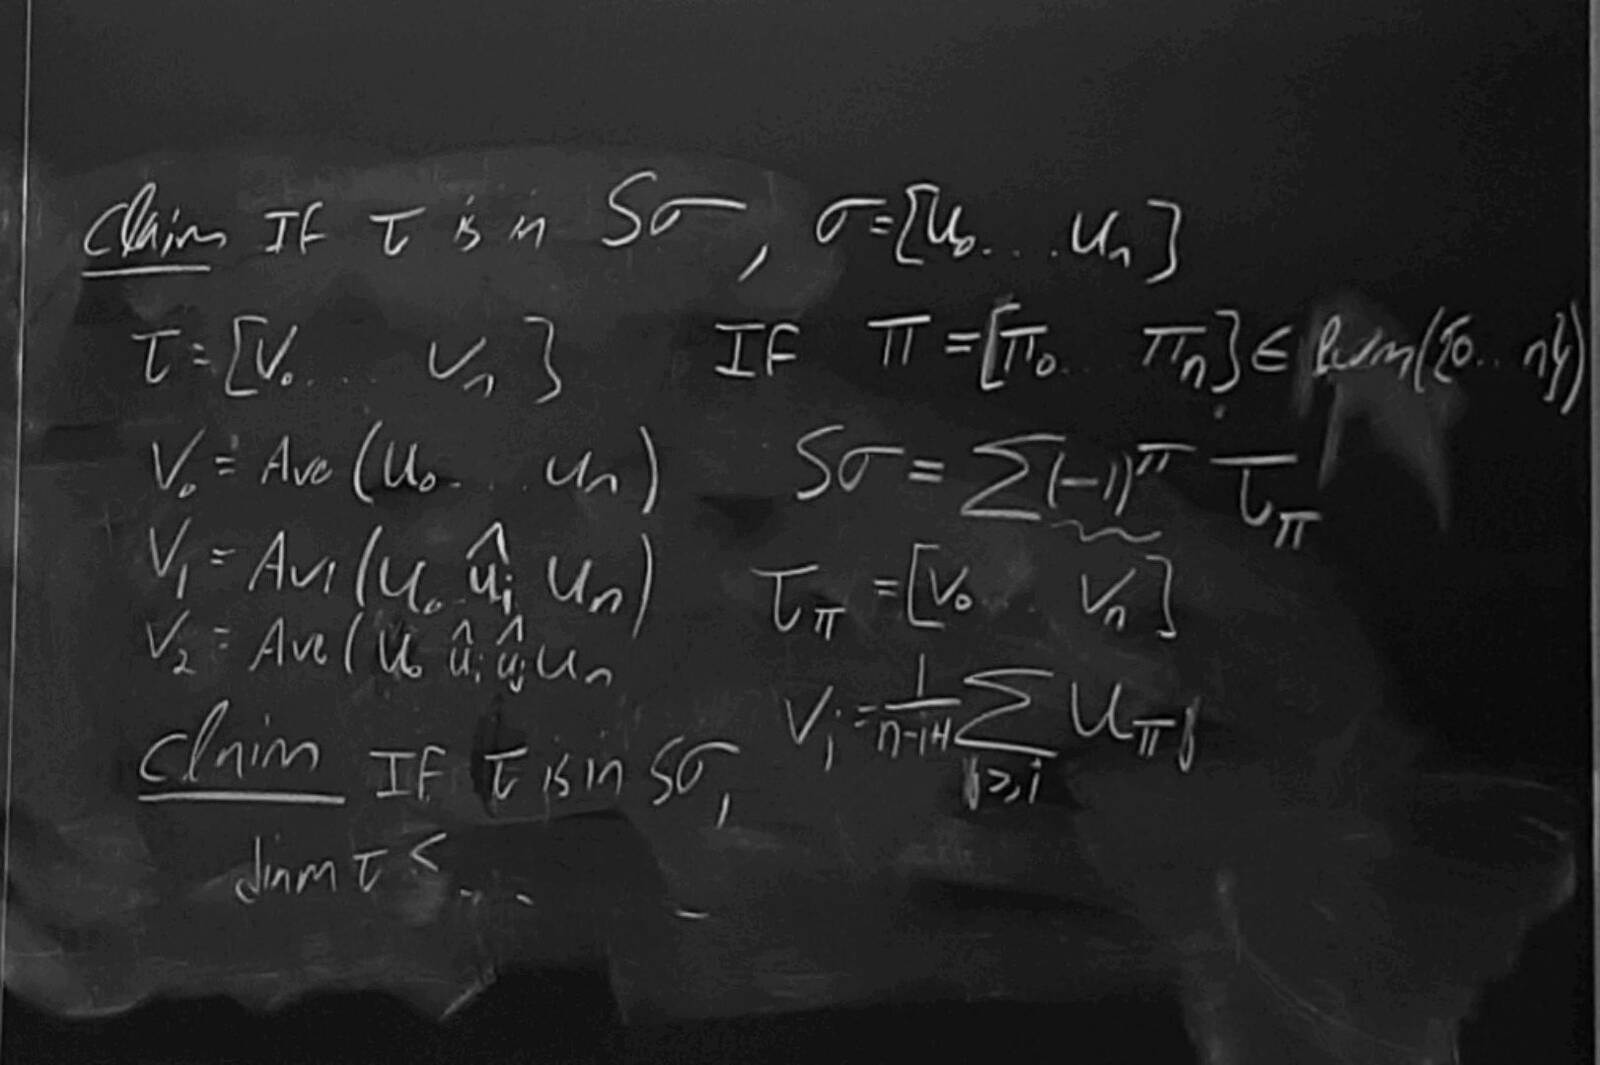 Claim If τ is in Sσ, σ=[u₀...uₙ]
τ=[v₀... vₙ]
v₀ = Ave(u₀... uₙ)
v₁ = Ave(u₀..ûᵢ uₙ)
v₂ = Ave(u₀ ûᵢ ûⱼ uₙ
Claim If τ is in Sσ,
dim τ < ...
If π=[π₀.. πₙ] ∈ Perm({0..n})
Sσ = ∑(-1)^π τ_π
τ_π = [v₀.. vₙ]
vᵢ = 1/(n-i+1) ∑_{j≥i} u_{πj}